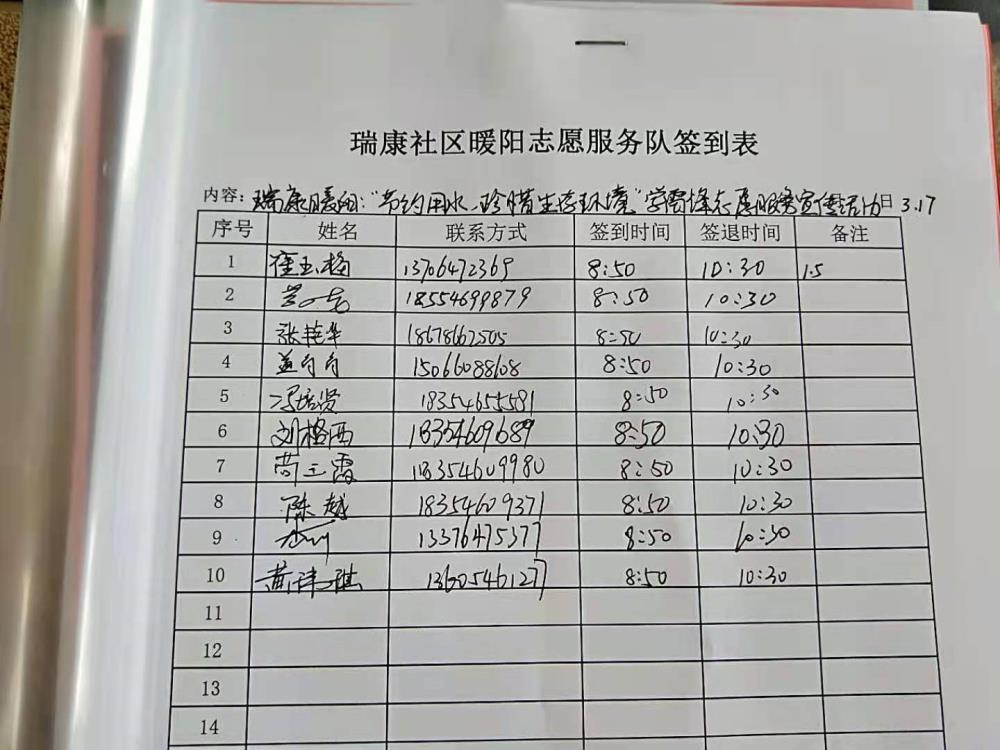 瑞康社区暖阳志愿服务队签到表
内容：瑞康暖阳："节约用水、珍惜生态环境"学雷锋志愿服务宣传活动日 3.17
序号 姓名 联系方式 签到时间 签退时间 备注
1 崔玉梅 13706472369 8:50 10:30 1.5
2 18554699879 8:50 10:30
3 张艳华 18678662505 8:50 10:30
4 盖月月 15066088608 8:50 10:30
5 冯培贤 18354655581 8:50 10:30
6 刘格西 18354609689 8:50 10:30
7 苟玉霞 18354609980 8:50 10:30
8 陈越 18354609371 8:50 10:30
9 13376475377 8:50 10:30
10 黄津琪 13605461277 8:50 10:30
11
12
13
14